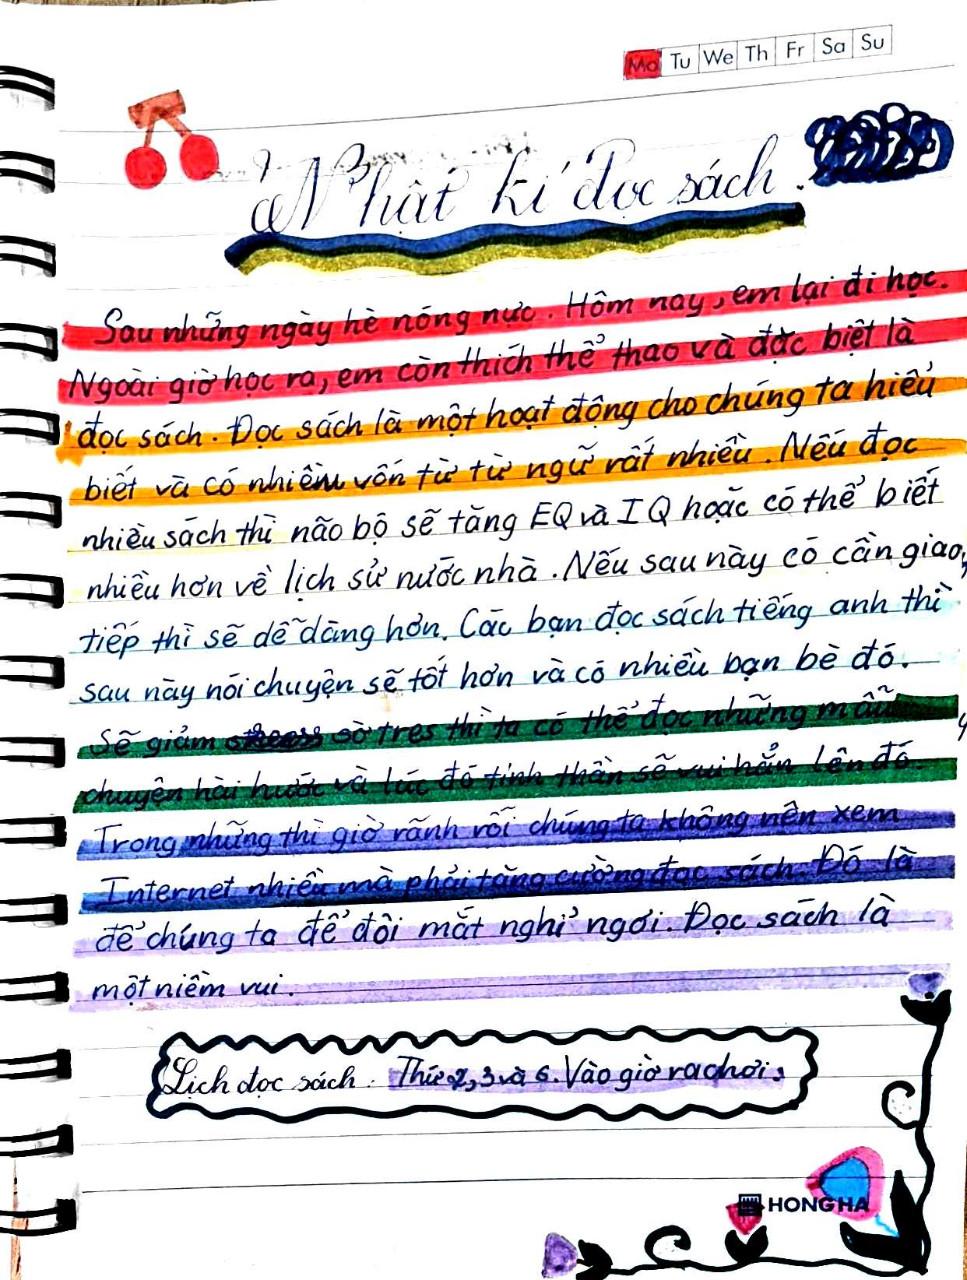 Mo Tu We Th Fr Sa Su
Nhật kí đọc sách.
Sau những ngày hè nóng nực. Hôm nay, em lại đi học.
Ngoài giờ học ra, em còn thích thể thao và đặc biệt là
đọc sách. Đọc sách là một hoạt động cho chúng ta hiểu
biết và có nhiều vốn từ từ ngữ rất nhiều. Nếu đọc
nhiều sách thì não bộ sẽ tăng EQ và IQ hoặc có thể biết
nhiều hơn về lịch sử nước nhà. Nếu sau này có cần giao
tiếp thì sẽ dễ dàng hơn. Các bạn đọc sách tiếng anh thì
sau này nói chuyện sẽ tốt hơn và có nhiều bạn bè đó.
Sẽ giảm sờ tres thì ta có thể đọc những mẩu
chuyện hài hước và lúc đó tinh thần sẽ vui hẳn lên đó.
Trong những thì giờ rãnh rỗi chúng ta không nên xem
Internet nhiều mà phải tăng cường đọc sách. Đó là
để chúng ta để đôi mắt nghỉ ngơi. Đọc sách là
một niềm vui.
Lịch đọc sách: Thứ 2, 3 và 6. Vào giờ ra chơi.
HONG HA